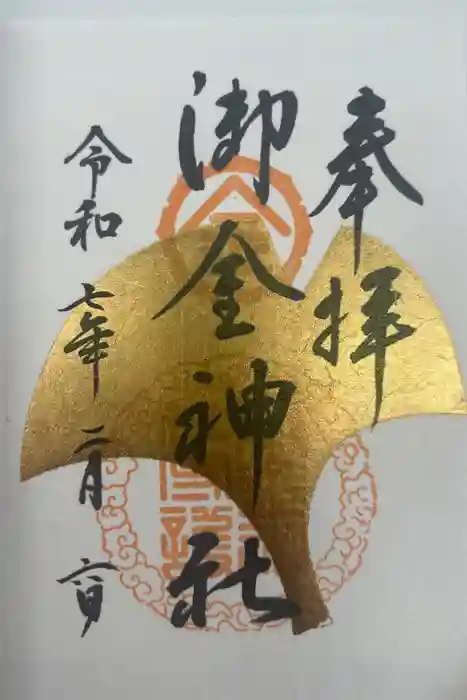 奉拝
御金神社
令和七年二月六日